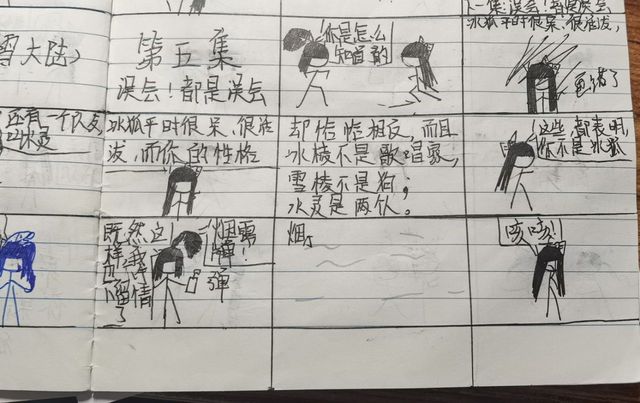 雪大陆》
第五集
误会！都是误会
你是怎么
知道的
下一集：误会！都是误会
冰狐平时很呆，很活泼，
色错了
还有一个队友，
叫冰灵
冰狐平时很呆，很活
泼，而你的性格
却恰恰相反，而且
冰棱不是歌唱家，
雪棱不是狗；
水灵是两队。
这些，都表明，
你不是冰狐
既然这
样，我
也不留情
了
烟雾
弹！
弹
烟
咳咳！！